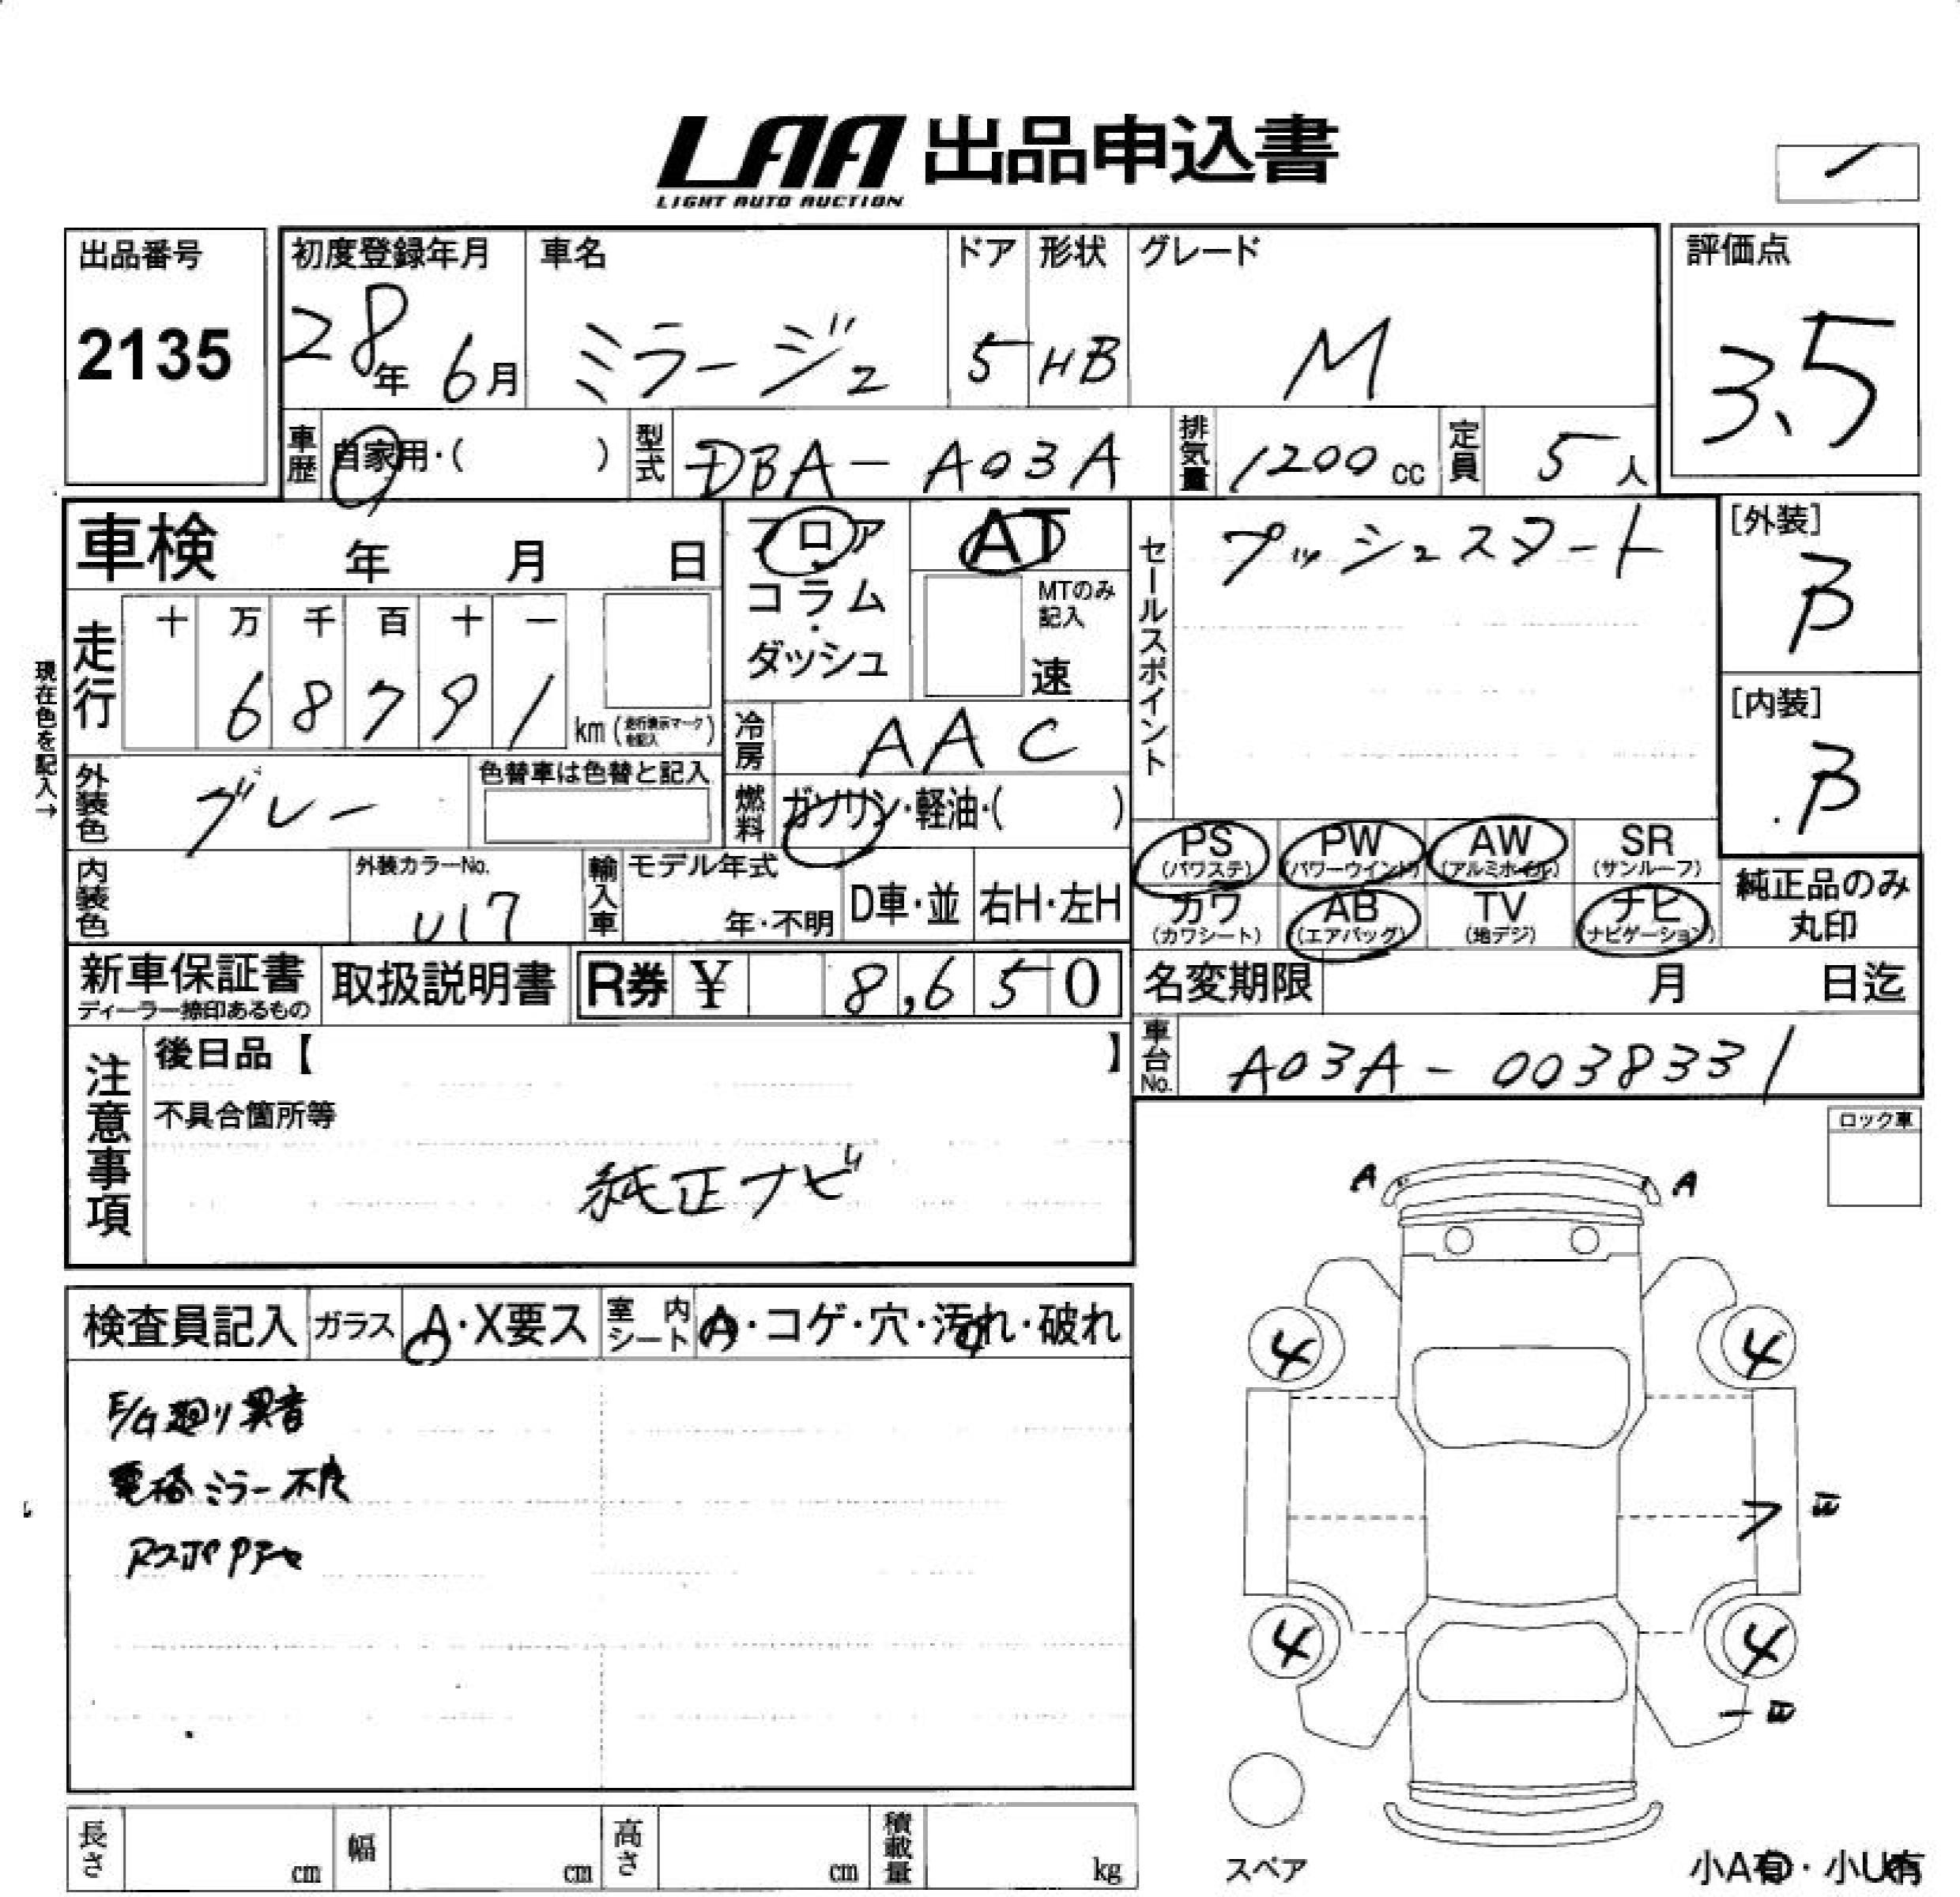 LAA 出品申込書
LIGHT AUTO AUCTION
出品番号
2135
初度登録年月
28年 6月
車名
ミラージュ
ドア
5
形状
HB
グレード
M
評価点
3.5
車歴
自家用・( )
型式
DBA-A03A
排気量
1200 cc
定員
5人
車検 年 月 日
フロア
コラム
・
ダッシュ
AT
MTのみ
記入
速
セールスポイント
プッシュスタート
[外装]
B
[内装]
B
現在色を記入→
走行
十 万 千 百 十 一
6 8 7 9 1
km (走行表示マークを記入)
冷房
AAC
外装色
グレー
色替車は色替と記入
燃料
ガソリン・軽油・( )
PS
(パワステ)
PW
(パワーウインド)
AW
(アルミホイル)
SR
(サンルーフ)
カワ
(カワシート)
AB
(エアバッグ)
TV
(地デジ)
ナビ
(ナビゲーション)
純正品のみ
丸印
内装色
外装カラーNo.
U17
輸入車
モデル年式
年・不明
D車・並
右H・左H
新車保証書
ディーラー捺印あるもの
取扱説明書
R券 ¥ 8,650
名変期限 月 日迄
車台No.
A03A-0038331
注意事項
後日品【 】
不具合箇所等
純正ナビ
ロック車
A A
検査員記入
ガラス
A・X要ス
室内シート
A・コゲ・穴・汚れ・破れ
E/G廻り異音
電格ミラー不良
4 4
フ
4 4
長さ cm
幅 cm
高さ cm
積載量 kg
スペア
小A有・小U有